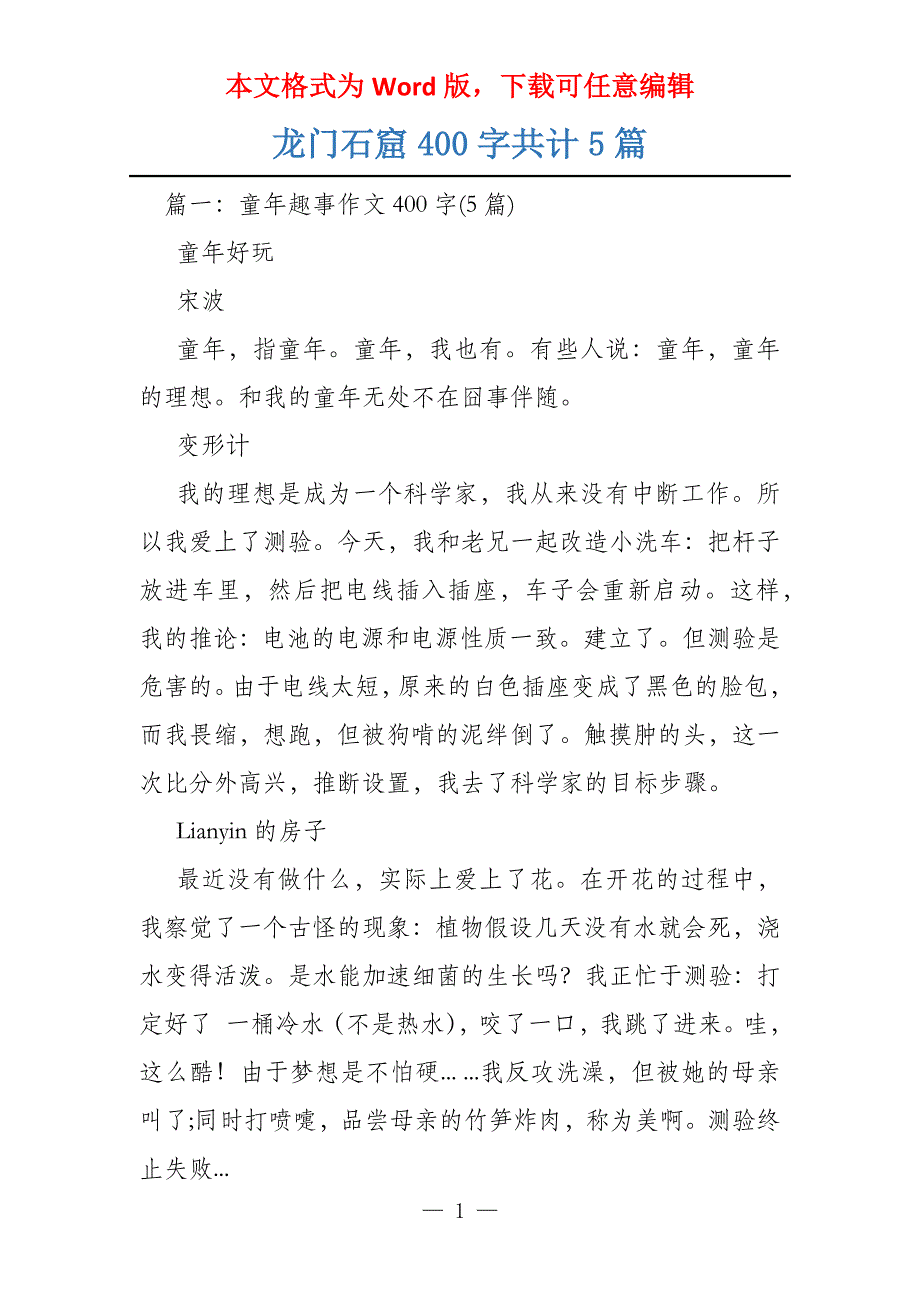 本文格式为 Word 版，下载可任意编辑
龙门石窟 400 字共计 5 篇
篇一：童年趣事作文 400 字(5 篇)
童年好玩
宋波
童年，指童年。童年，我也有。有些人说：童年，童年
的理想。和我的童年无处不在囧事伴随。
变形计
我的理想是成为一个科学家，我从来没有中断工作。所
以我爱上了测验。今天，我和老兄一起改造小洗车：把杆子
放进车里，然后把电线插入插座，车子会重新启动。这样，
我的推论：电池的电源和电源性质一致。建立了。但测验是
危害的。由于电线太短，原来的白色插座变成了黑色的脸包，
而我畏缩，想跑，但被狗啃的泥绊倒了。触摸肿的头，这一
次比分外高兴，推断设置，我去了科学家的目标步骤。
Lianyin 的房子
最近没有做什么，实际上爱上了花。在开花的过程中，
我察觉了一个古怪的现象：植物假设几天没有水就会死，浇
水变得活泼。是水能加速细菌的生长吗？我正忙于测验：打
定好了 一桶冷水（不是热水），咬了一口，我跳了进来。哇，
这么酷！由于梦想是不怕硬... ...我反攻洗澡，但被她的母亲
叫了;同时打喷嚏，品尝母亲的竹笋炸肉，称为美啊。测验终
止失败...
— 1 —